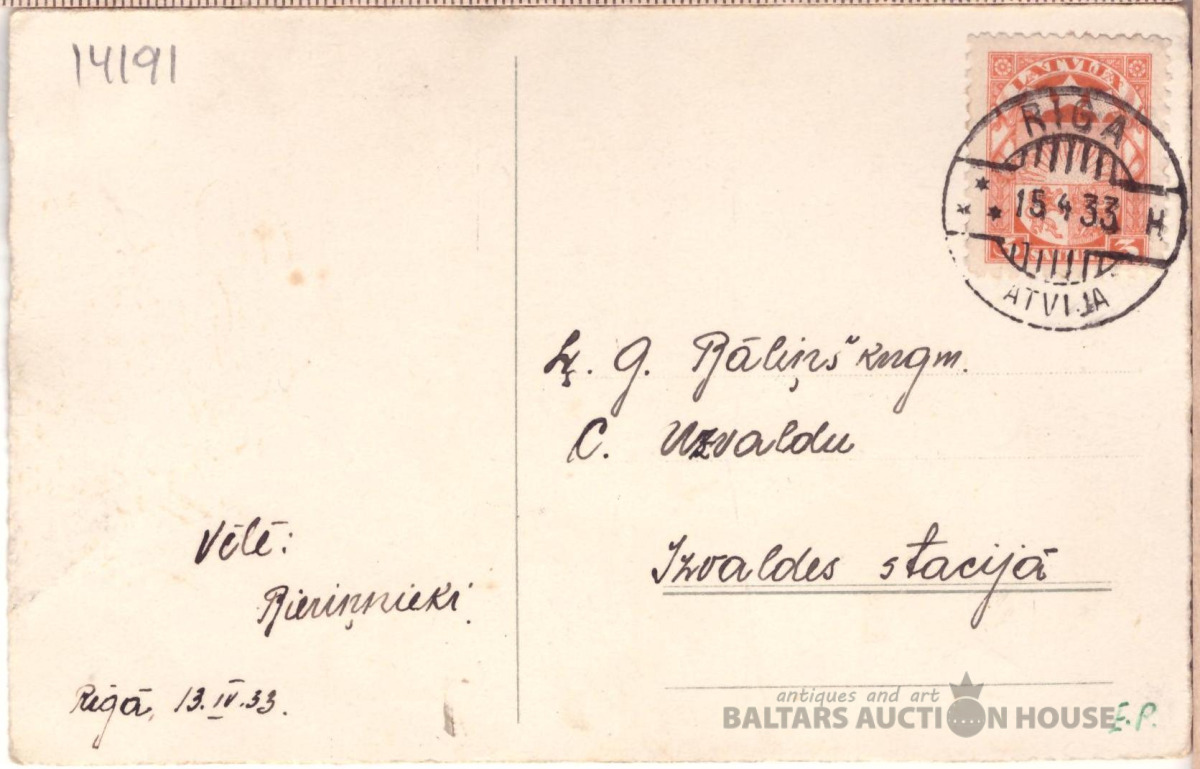 14191
LATVIJA
RIGA
15 4 33 H
LATVIJA
G. Bāliņš kngm.
C. Uzvaldu
Izvaldes stacijā
Vēlē:
Bieriņnieki
Rīgā, 13.IV.33.
antiques and art
BALTARS AUCTION HOUSE
E.P.